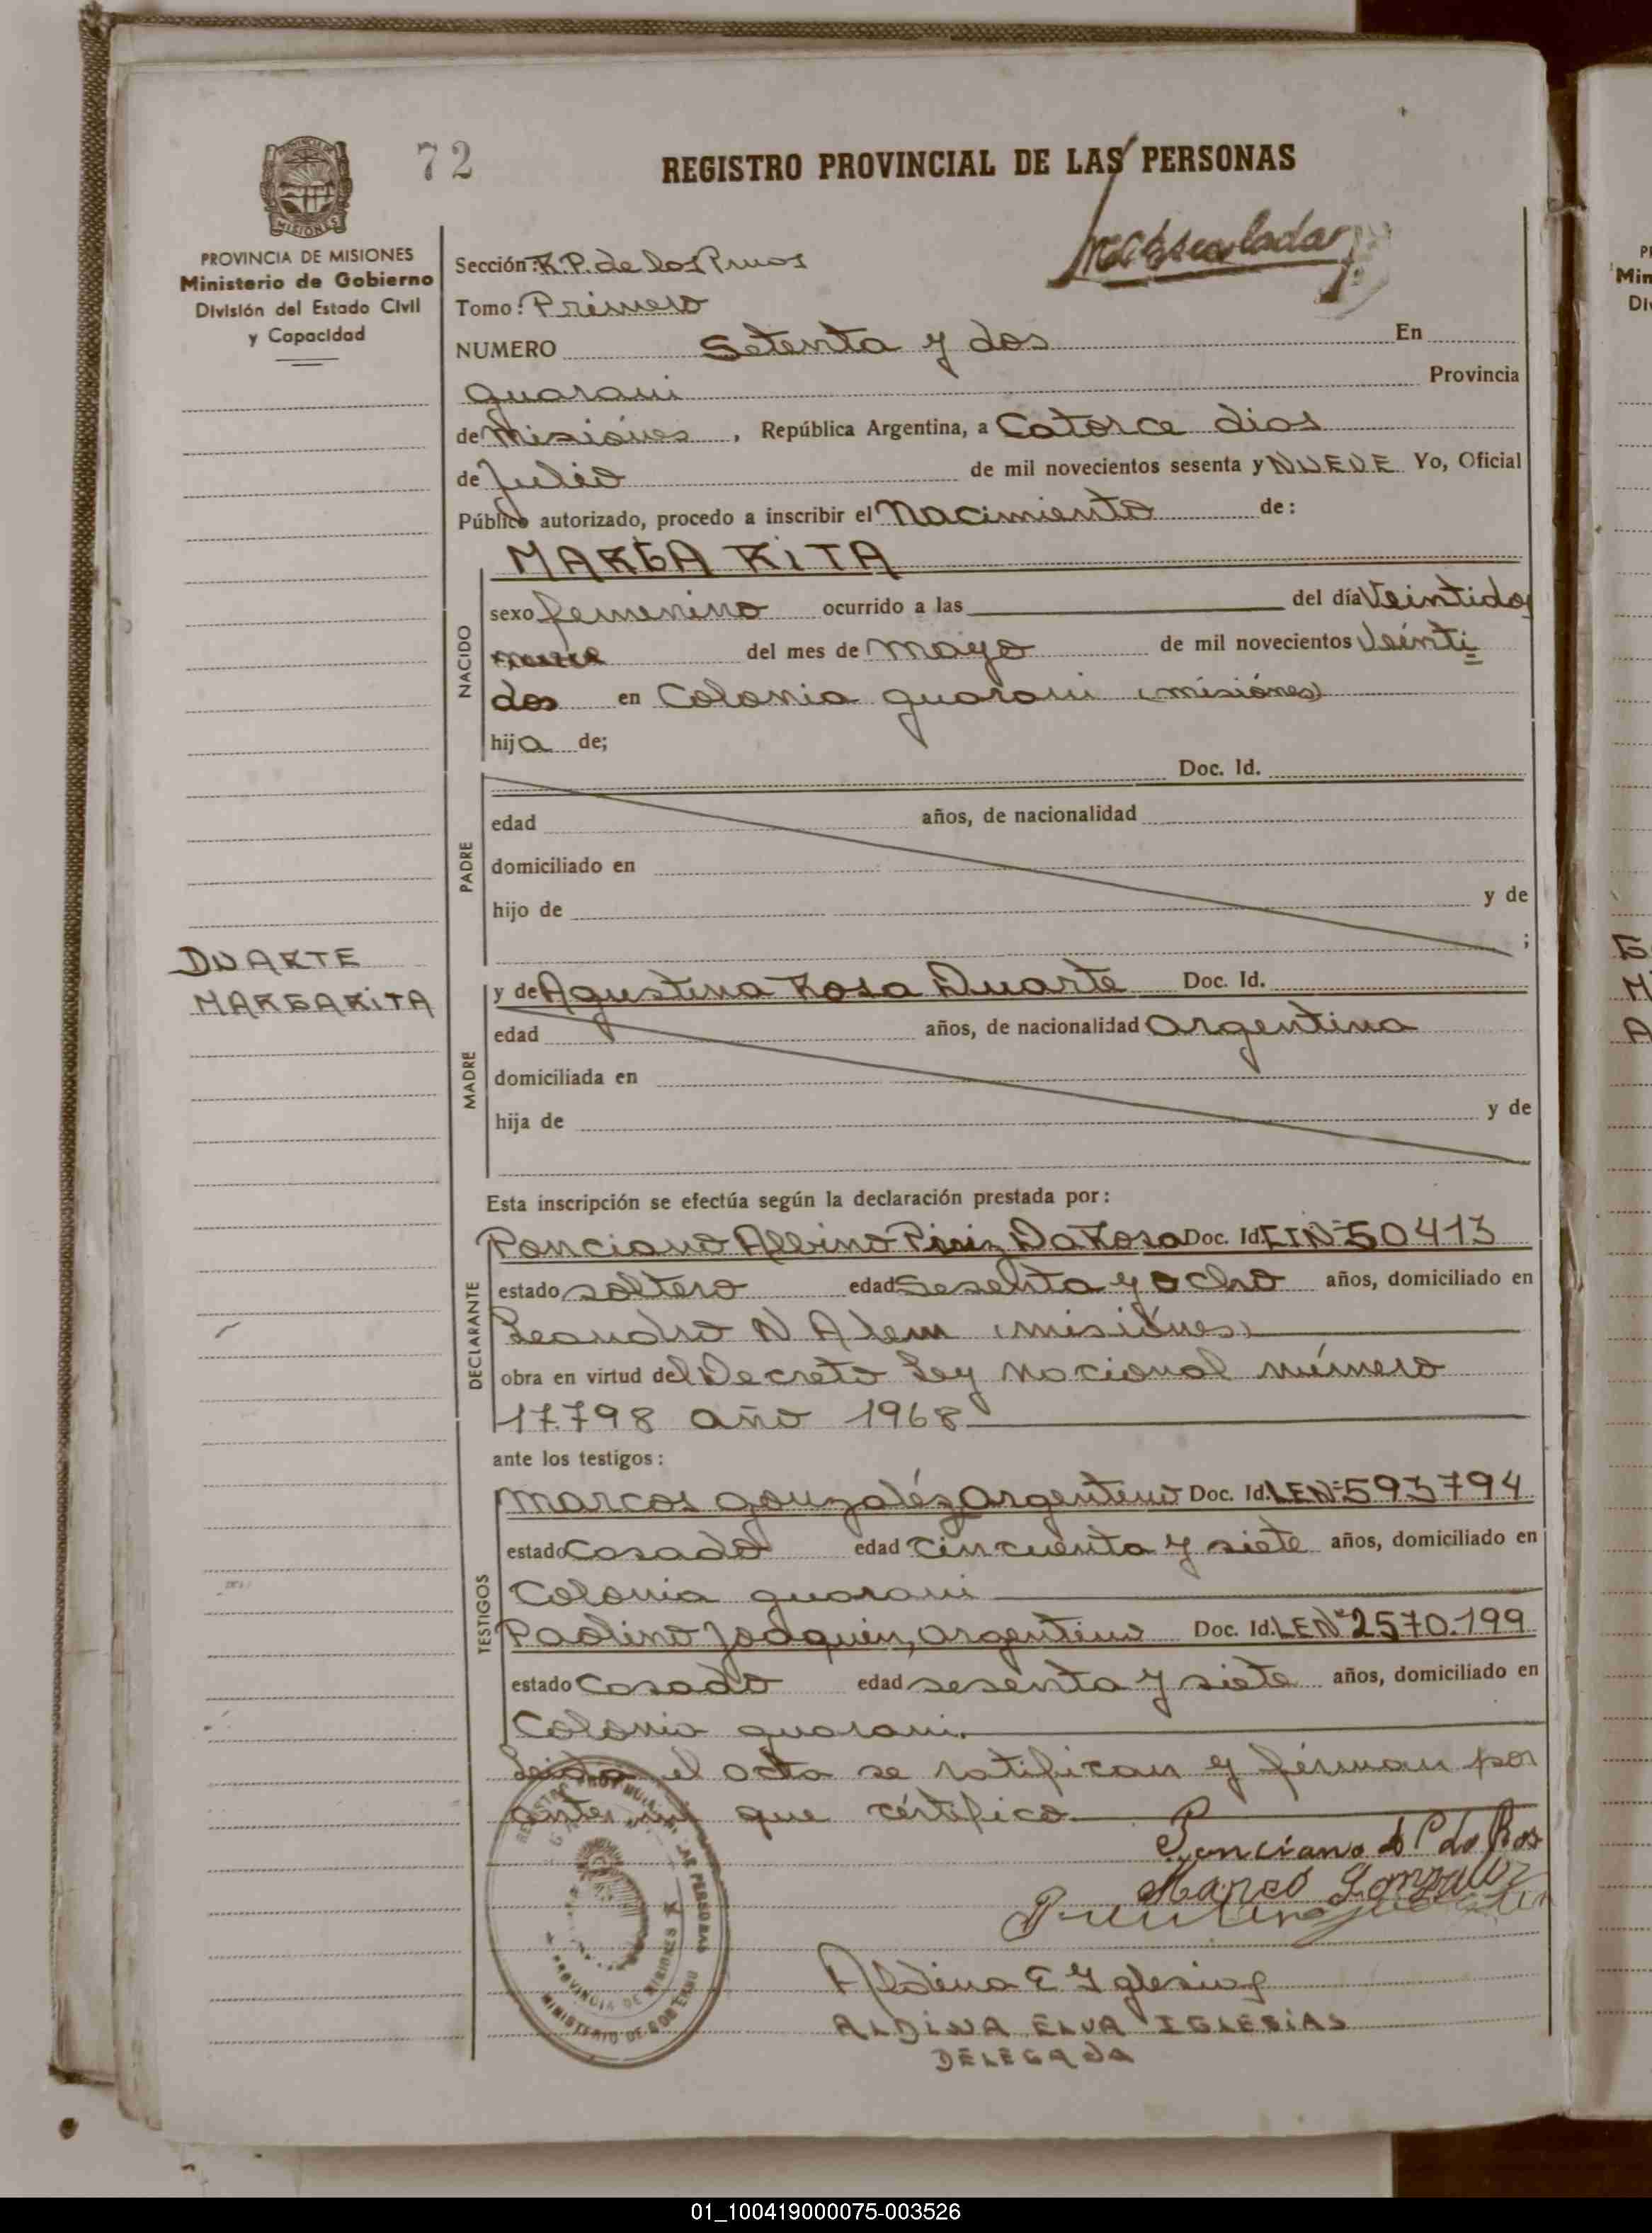 72
REGISTRO PROVINCIAL DE LAS PERSONAS
PROVINCIA DE MISIONES
MISIONES
PROVINCIA DE MISIONES
Ministerio de Gobierno
División del Estado Civil
y Capacidad
Sección: R.P. de las
Tomo: Primero
NUMERO Setenta y dos En
guarani Provincia
de Misiónes, República Argentina, a Catorce dias
de Julio de mil novecientos sesenta y NUEVE Yo, Oficial
Público autorizado, procedo a inscribir el Nacimiento de:
MARGARITA
NACIDO
sexo femenino ocurrido a las del día Veintidos
del mes de mayo de mil novecientos Veinti
dos en Colonia guarani (misiónes)
hija de;
PADRE
Doc. Id.
edad años, de nacionalidad
domiciliado en
hijo de y de
;
DUARTE
MARGARITA
MADRE
y de Agustina Rosa Duarte Doc. Id.
edad años, de nacionalidad Argentina
domiciliada en
hija de y de
Esta inscripción se efectúa según la declaración prestada por:
DECLARANTE
Ponciano Albino Piriz Da Rosa Doc. Id. 50413
estado soltero edad Sesenta y ocho años, domiciliado en
Leandro N Alem (misiónes)
obra en virtud del Decreto Ley nacional número
17.798 año 1968
ante los testigos:
TESTIGOS
Marcos gonzaléz, argentino Doc. Id. L.E.Nº 593794
estado Casado edad Cincuenta y siete años, domiciliado en
Colonia guarani
Paolino Joaquin, argentino Doc. Id. L.E.Nº 2570.199
estado Casado edad sesenta y siete años, domiciliado en
Colonia guarani
Leida el acta se ratifican y firman por
ante mi que certifico
Ponciano A P da Ros
Marco Gonzalez
Aldina E Yglesias
ALDINA ELVA IGLESIAS
DELEGADA
PROVINCIA DE MISIONES
MINISTERIO DE GOBIERNO
01_100419000075-003526